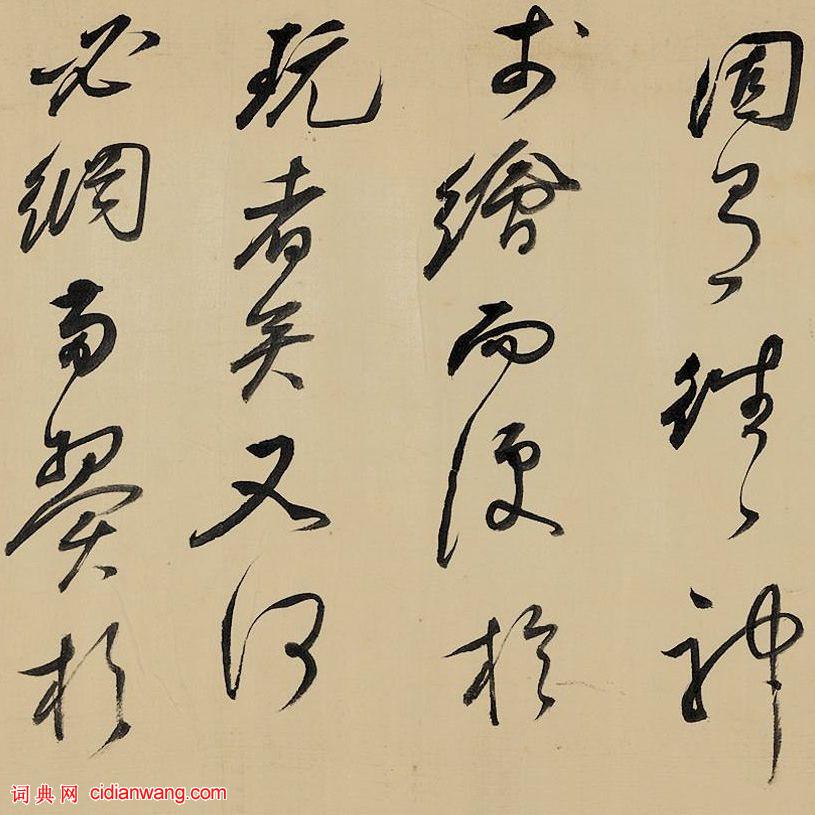 固有種種神
于繪而便於
玩者矣又何
必網南翼於
词典网 cidianwang.com